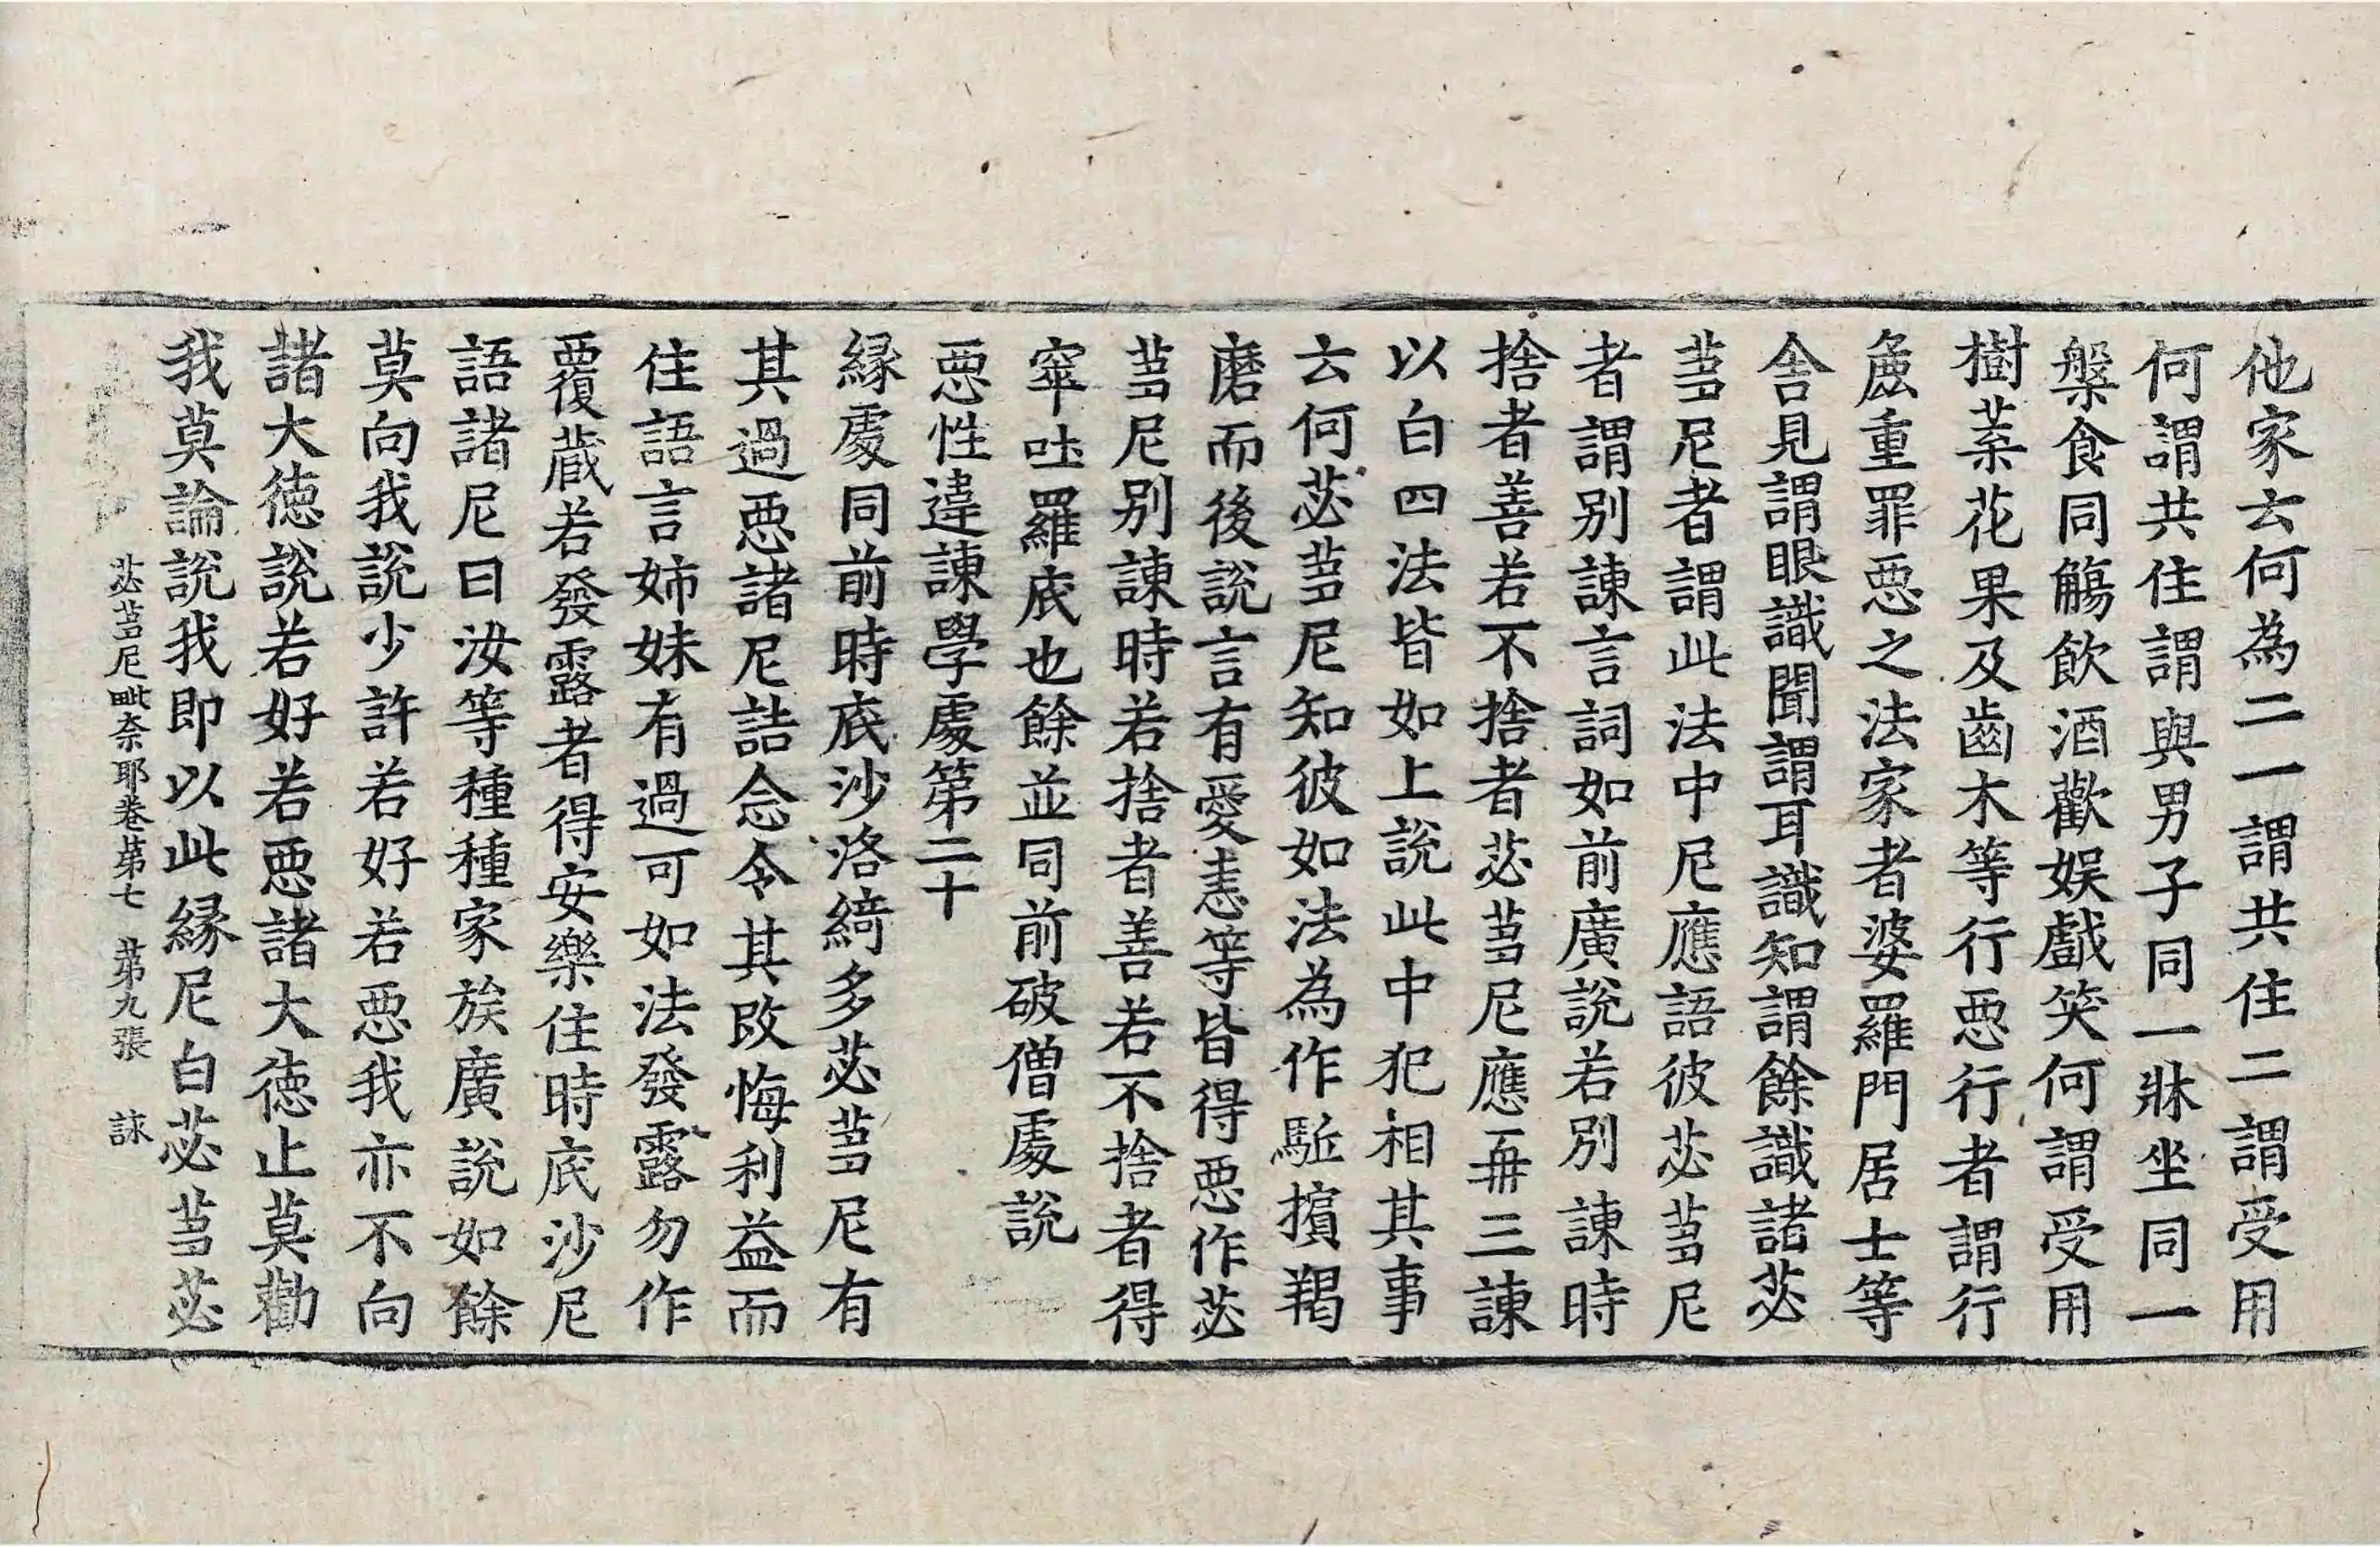 他家云何為二一謂共住二謂受用
何謂共住謂與男子同一牀坐同一
槃食同觴飲酒歡娛戲笑何謂受用
樹葉花果及齒木等行惡行者謂行
麁重罪惡之法家者婆羅門居士等
舍見謂眼識聞謂耳識知謂餘識諸苾
蒭尼者謂此法中尼應語彼苾蒭尼
者謂別諫言詞如前廣說若別諫時
捨者善若不捨者苾蒭尼應再三諫
以白四法皆如上說此中犯相其事
云何苾蒭尼知彼如法為作驅擯羯
磨而後說言有愛恚等皆得惡作苾
蒭尼別諫時若捨者善若不捨者得
窣吐羅底也餘並同前破僧處說
惡性違諫學處第二十
緣處同前時底沙洛綺多苾蒭尼有
其過惡諸尼詰念令其改悔利益而
住語言姉妹有過可如法發露勿作
覆藏若發露者得安樂住時底沙尼
語諸尼曰汝等種種家族廣說如餘
莫向我說少許若好若惡我亦不向
諸大德說若好若惡諸大德止莫勸
我莫論說我即以此緣尼白苾蒭苾
苾蒭尼毗奈耶卷第七 第九張 詠